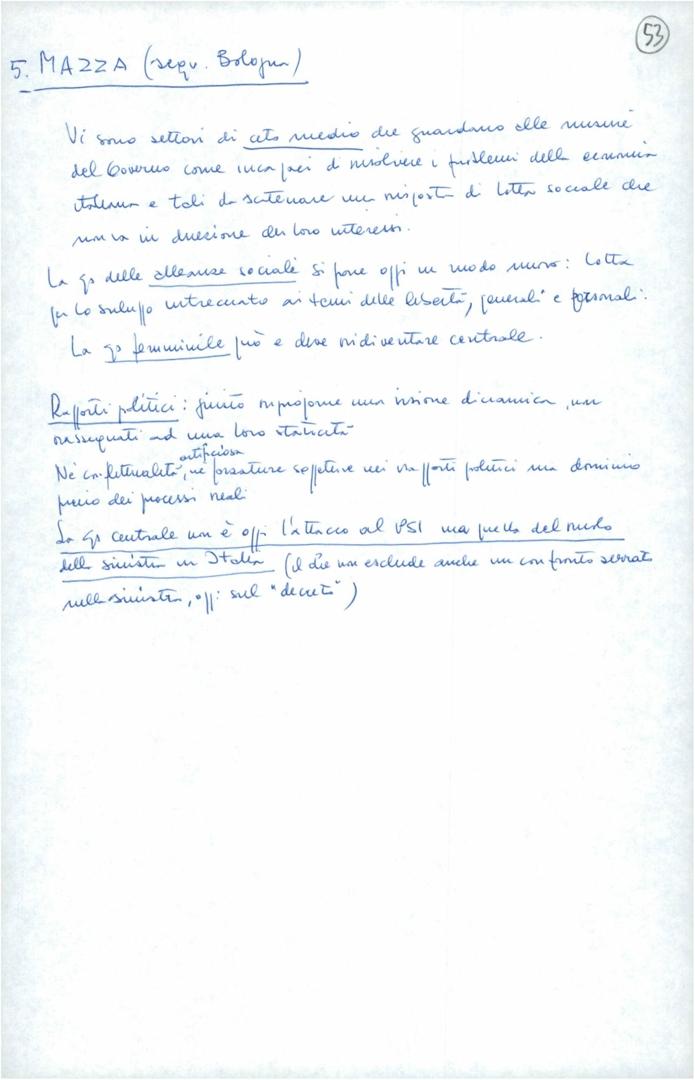 53
5. MAZZA (segr. Bologna)
Vi sono settori di ceto medio che guardano alle misure
del Governo come incapaci di risolvere i problemi della economia
italiana e tali da scatenare una risposta di lotta sociale che
non va in direzione dei loro interessi.
La qs delle alleanze sociali si pone oggi in modo nuovo: lotta
per lo sviluppo intrecciato ai temi delle libertà, generali e personali.
La qs femminile può e deve ridiventare centrale.
Rapporti politici: giusto riproporne una visione dinamica, non
rassegnati ad una loro staticità
Nè conflittualità artificiosa, nè forzature soggettive nei rapporti politici ma dominio
pieno dei processi reali
La qs centrale non è oggi l'attacco al PSI ma quella del ruolo
della sinistra in Italia (il che non esclude anche un confronto serrato
nella sinistra, oggi sul "decreto")